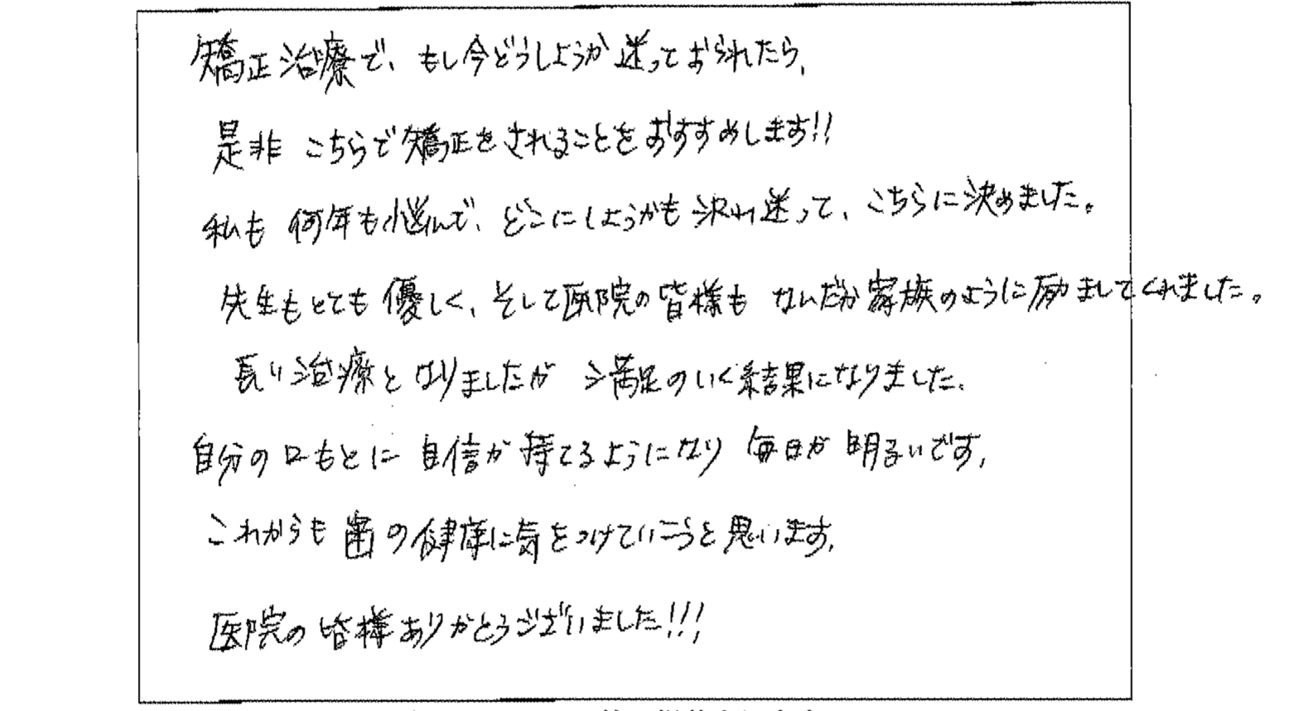 矯正治療で、もし今どうしようか迷っておられたら、
是非 こちらで矯正をされることをおすすめします!!
私も 何年も悩んで、どこにしようかも 迷って、こちらに決めました。
先生もとても優しく、そして医院の皆様も なんだか家族のように励ましてくれました。
長い治療となりましたが 満足のいく結果になりました。
自分の口もとに 自信が持てるようになり 毎日が 明るいです。
これからも 歯の健康に気をつけていこうと思います。
医院の皆様ありがとうございました!!!